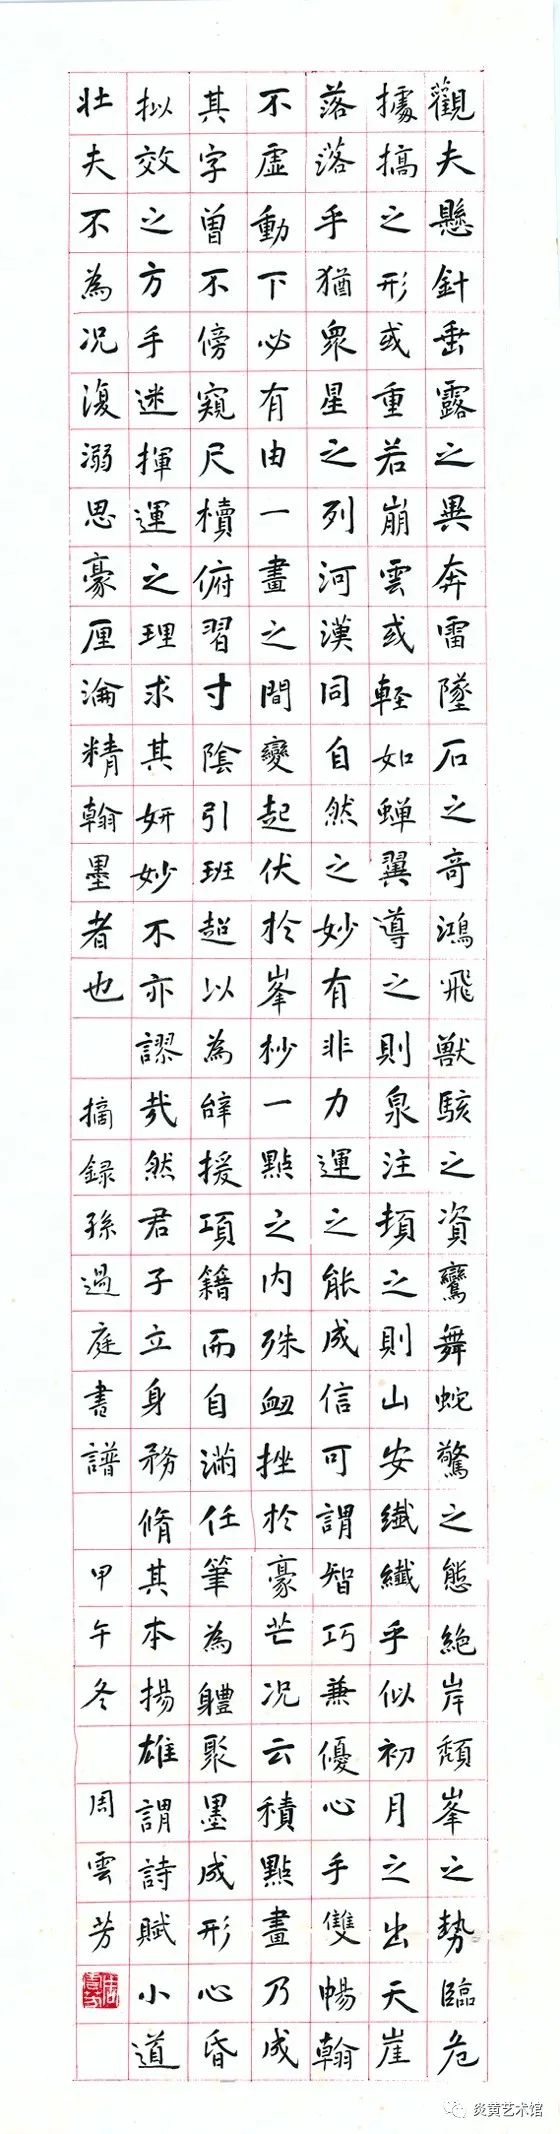 觀夫懸針垂露之異奔雷墜石之奇鴻飛獸駭之資鸞舞蛇驚之態絶岸頹峯之勢臨危
據搞之形或重若崩雲或輕如蟬翼導之則泉注頓之則山安纖纖乎似初月之出天崖
落落乎猶衆星之列河漢同自然之妙有非力運之能成信可謂智巧兼優心手雙暢翰
不虛動下必有由一畫之間變起伏於峯杪一點之内殊衄挫於豪芒况云積點畫乃成
其字曽不傍窺尺櫝俯習寸陰引班超以為辭援項籍而自滿任筆為體聚墨成形心昏
拟效之方手迷揮運之理求其妍妙不亦謬哉然君子立身務脩其本揚雄謂詩賦小道
壯夫不為况復溺思豪厘淪精翰墨者也 摘録孫過庭書譜 甲午冬 周雲芳
周雲芳
炎黄艺术馆